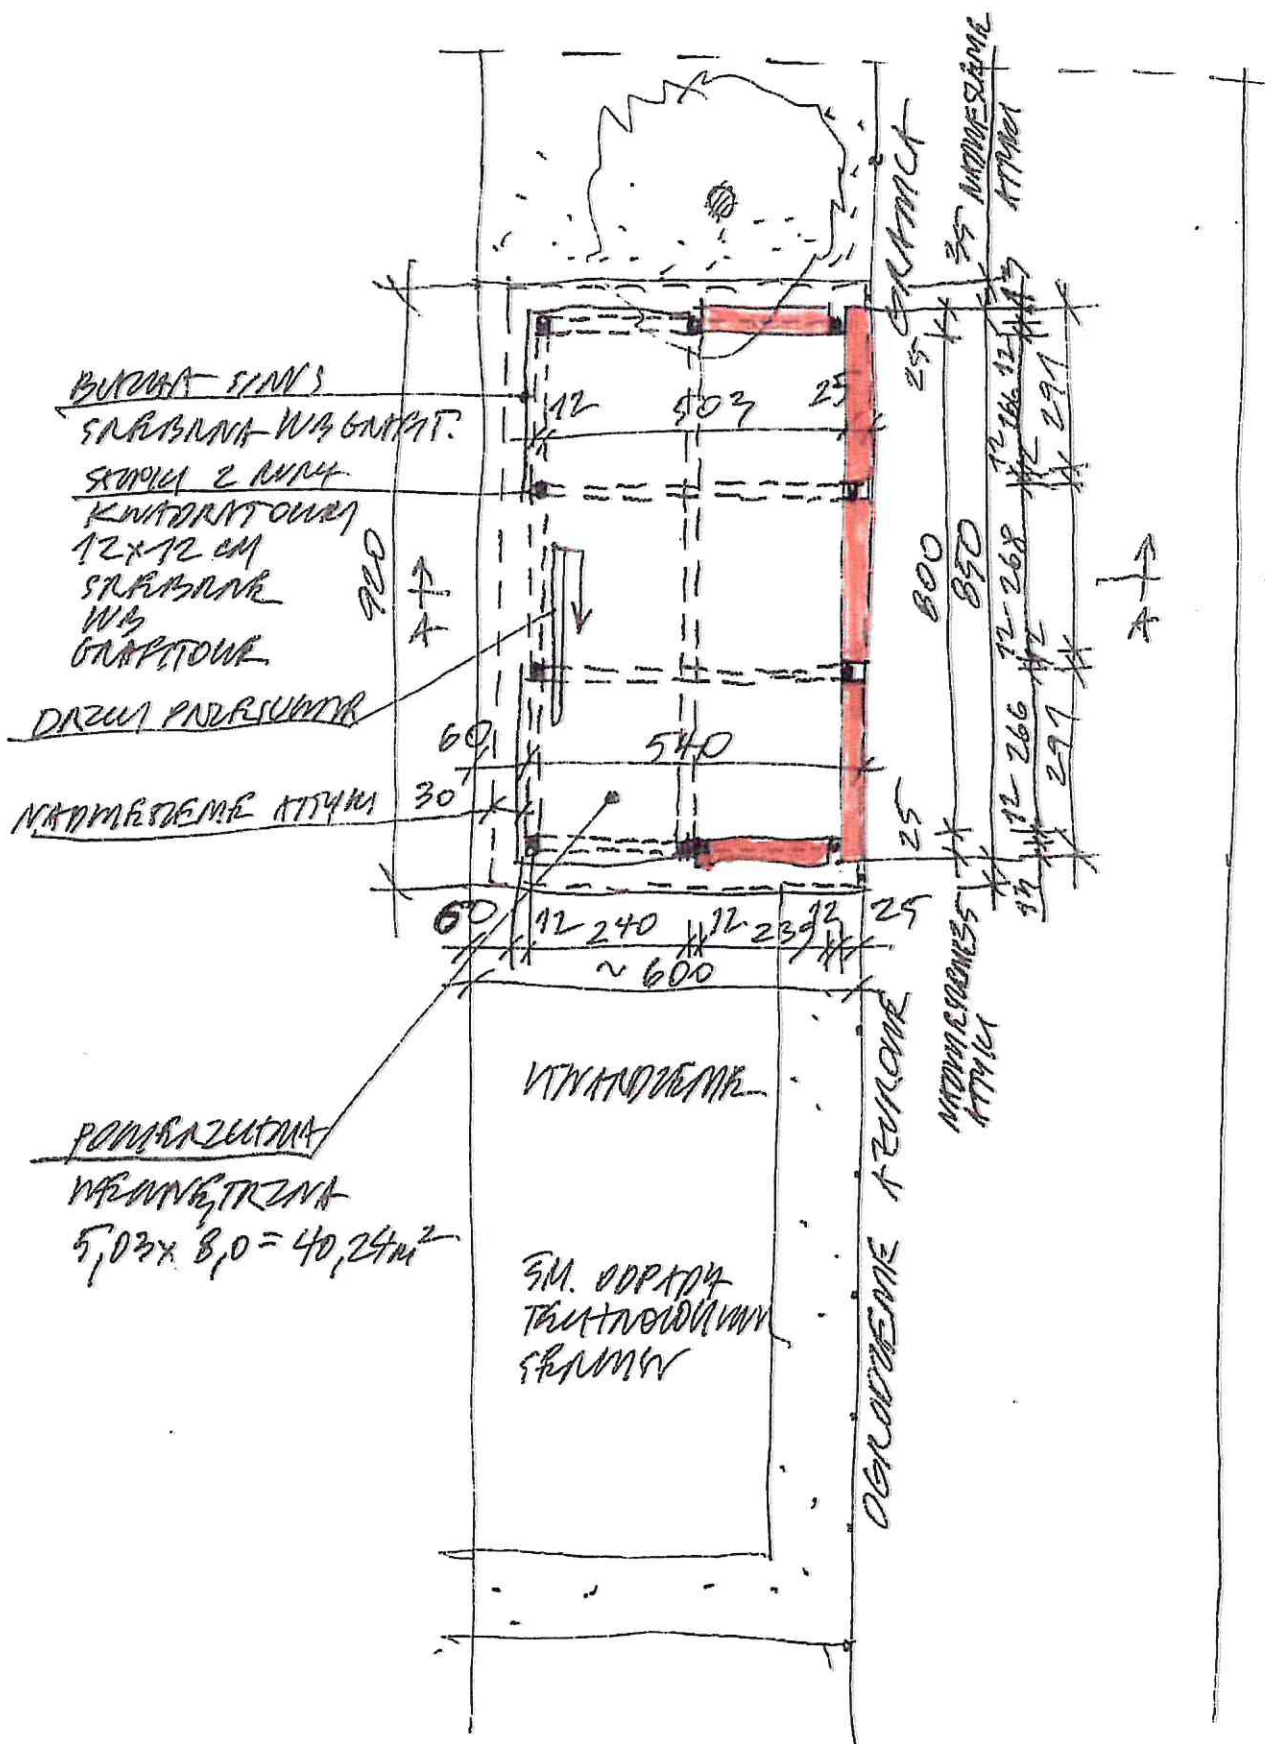 GRANICA
35 NADWIESZENIE
ATTYKI
BLACHA SINUS
SREBRNA WB GRAFIT.
SŁUPKI Z RURY
KWADRATOWEJ
12x12 CM
SREBRNE
WB
GRAFITOWE
DRZWI PRZESUWNE
NADWIESZENIE ATTYKI
30
12
503
25
920
A
60
540
25
25
800
850
13
12
266
12
268
12
266
12
13
291
12
12
291
A
60
12
240
12
235
12
25
~ 600
NADWIESZENIE 35
ATTYKI
UTWARDZENIE
OGRODZENIE AŻUROWE
POWIERZCHNIA
WEWNĘTRZNA
5,03x 8,0 = 40,24m²
SM. ODPADY